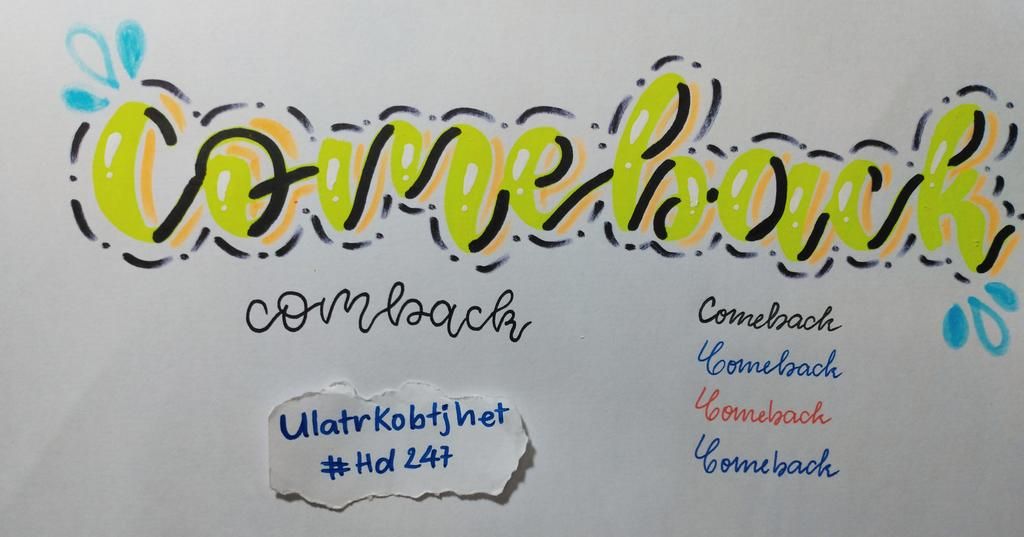 Comeback
comback
Comeback
Comeback
Comeback
Comeback
UlatrKobtjhet
#Hd 247